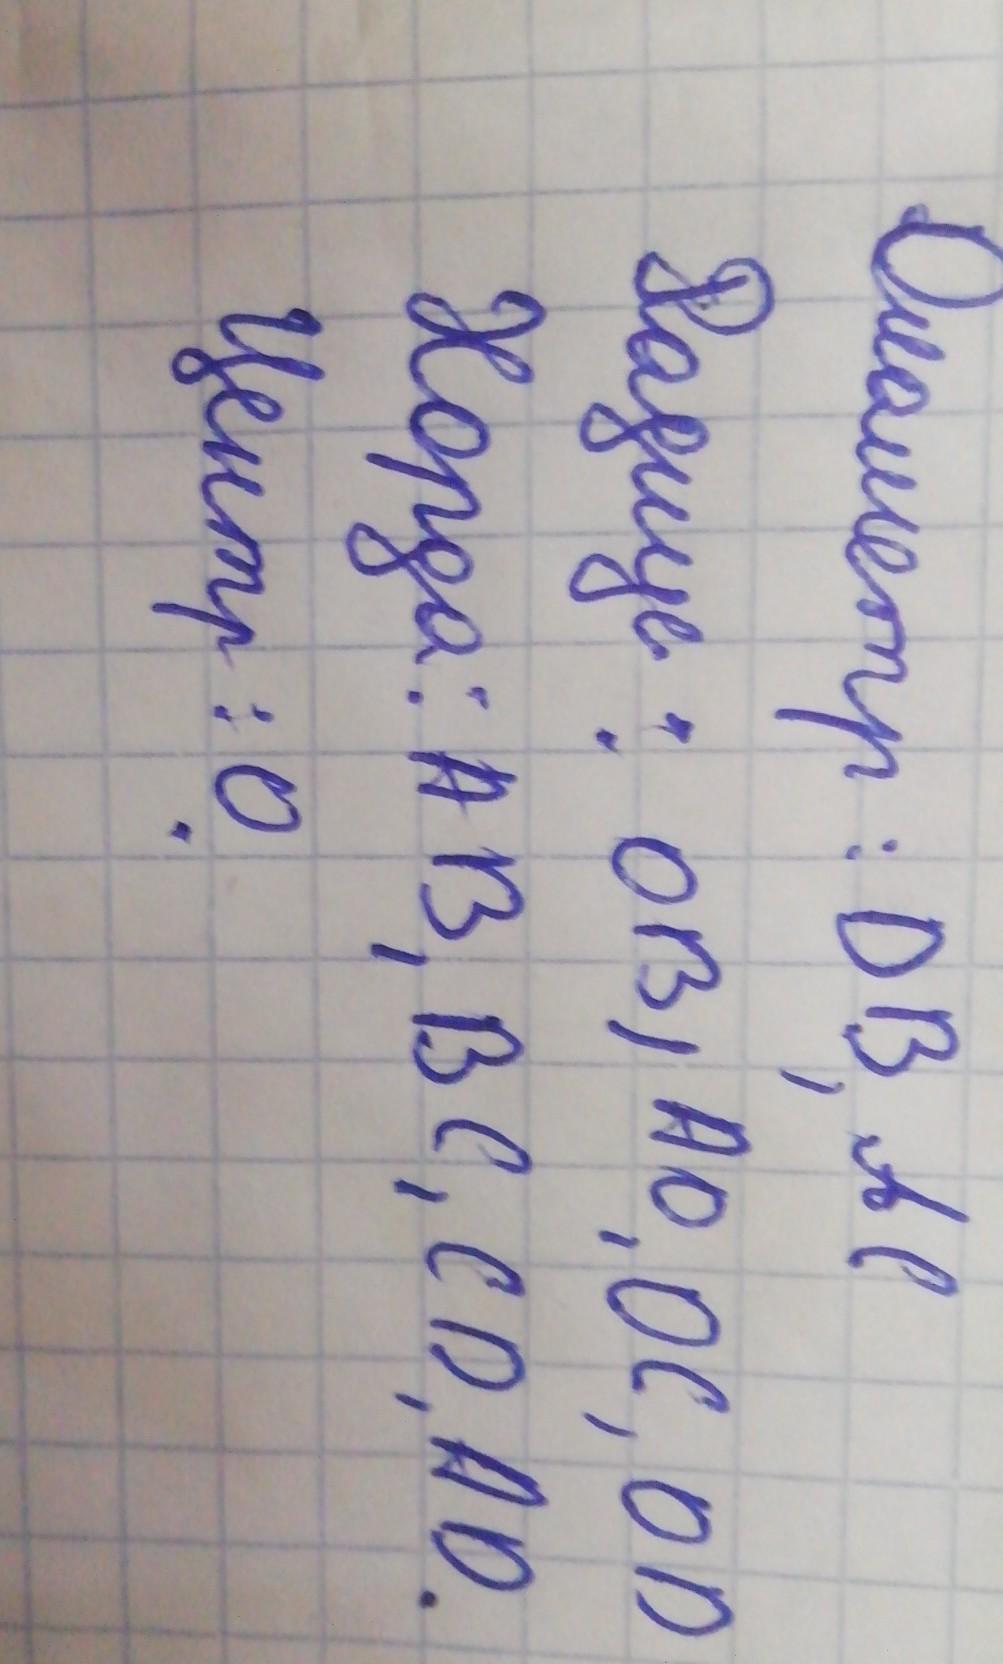 Диаметр: DB, AC
Радиус: OB, AO, OC, OD
Хорда: AB, BC, CD, AD.
Центр: O.